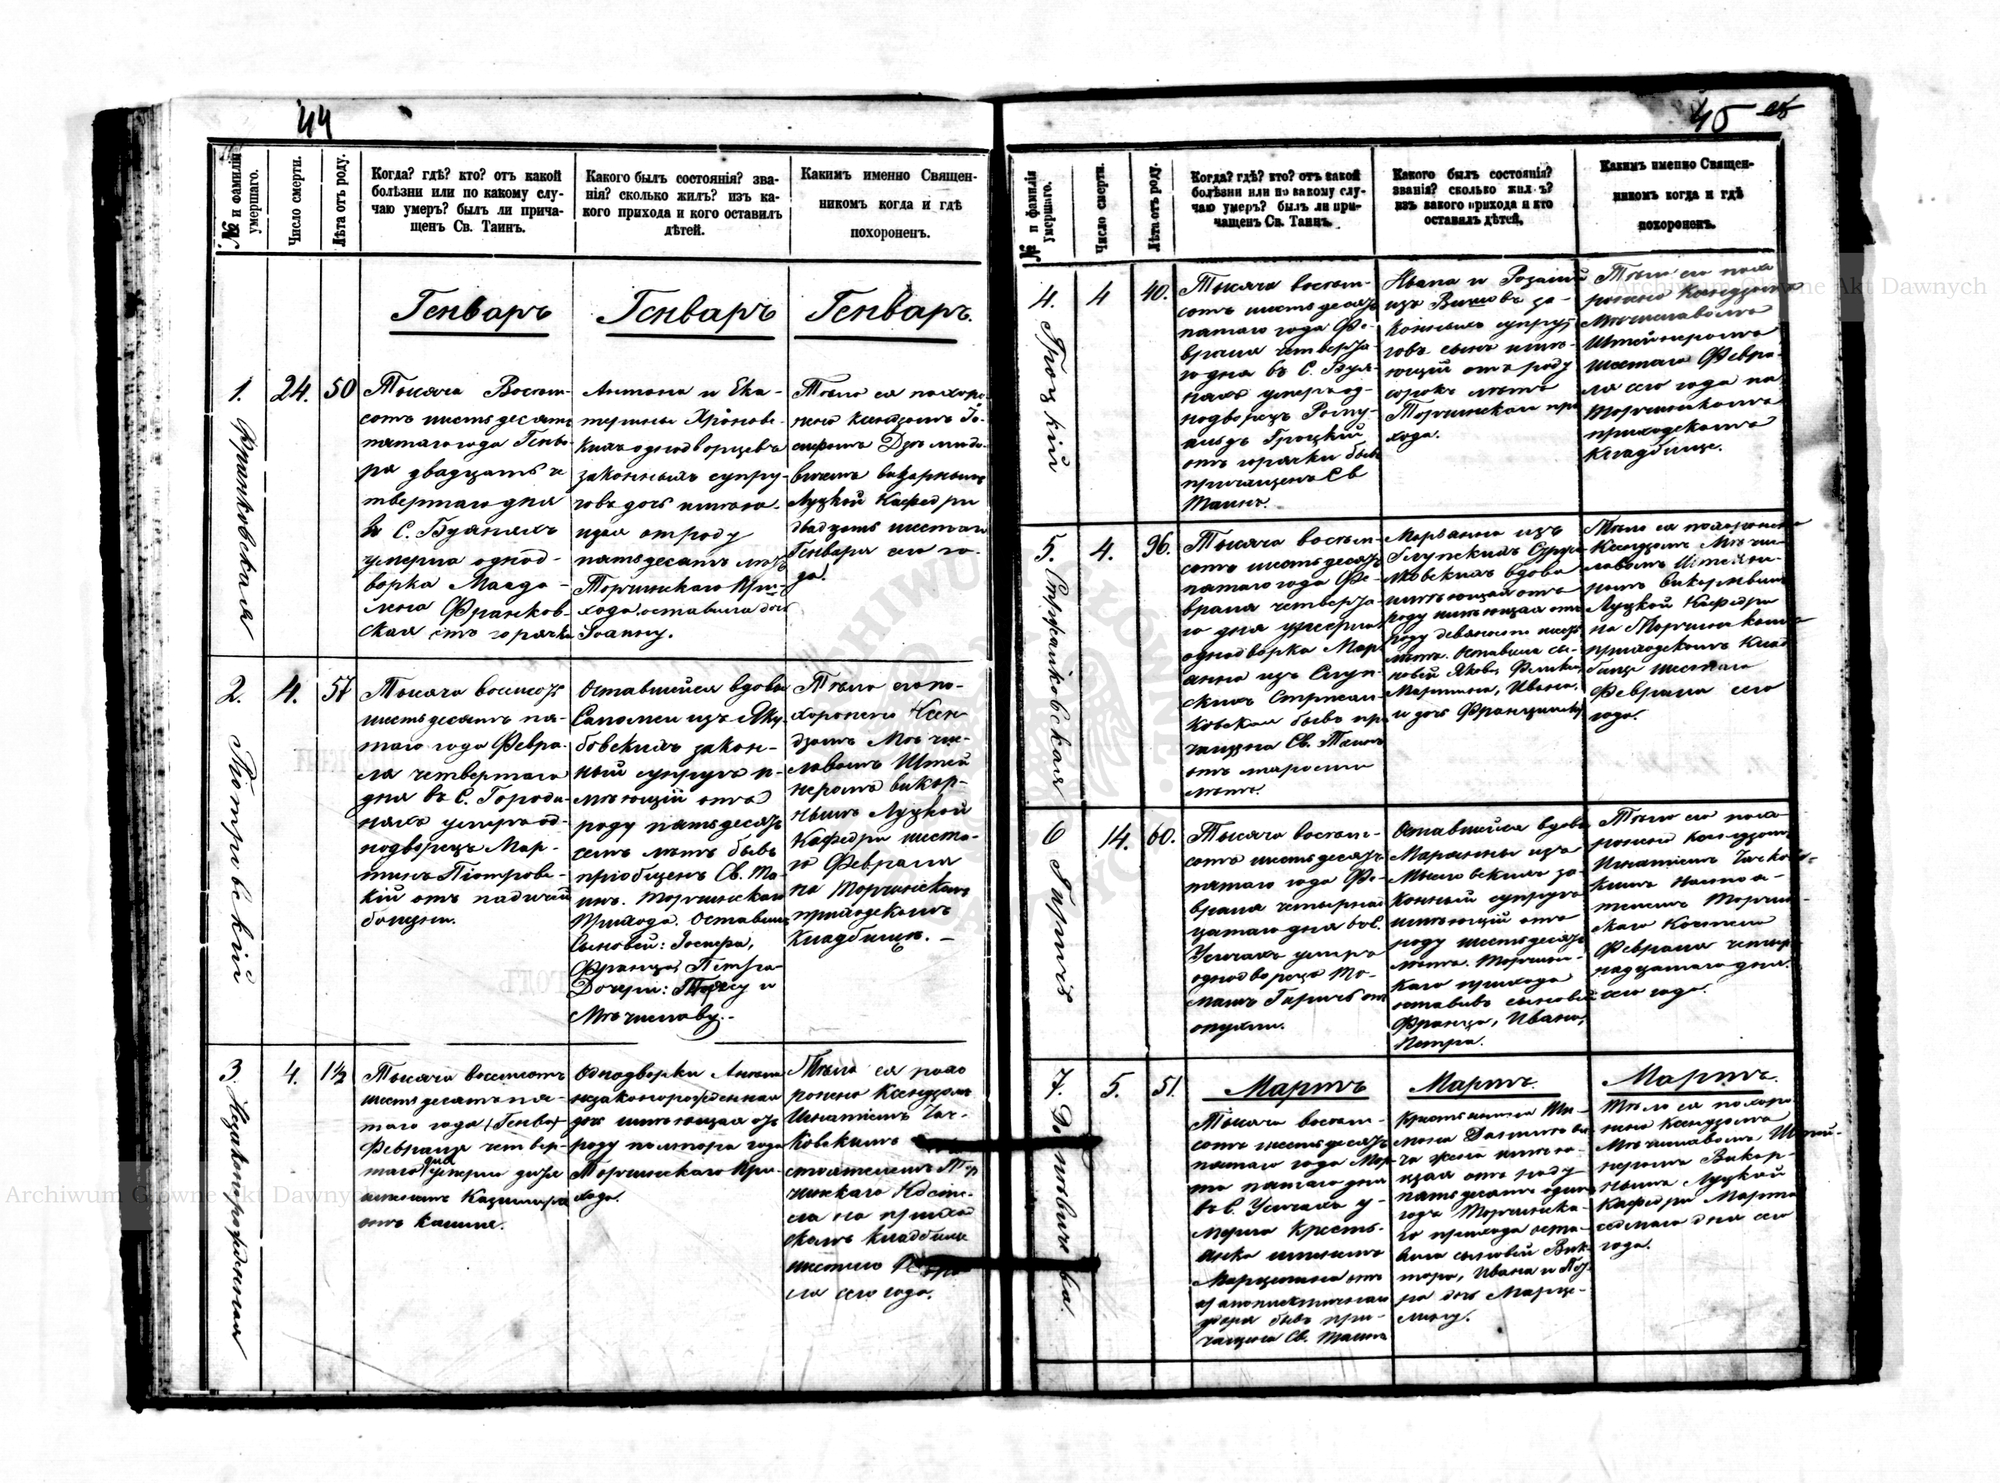 44
№ и фамилія умершаго.
Число смерти.
Лѣта отъ роду.
Когда? гдѣ? кто? отъ какой
болѣзни или по какому слу-
чаю умеръ? былъ ли прича-
щенъ Св. Таинъ.
Какого былъ состоянія? зва-
нія? сколько жилъ? изъ ка-
кого прихода и кого оставилъ
дѣтей.
Какимъ именно Священ-
никомъ когда и гдѣ
похороненъ.
Генваръ
Генваръ
Генваръ.
1.
Франковская
24.
50
Тысяча Восем-
сотъ шестьдесятъ
пятаго года Генва-
ря двадцать че
твертаго дня
в С. Буянахъ
умерла однод-
ворка Магда-
лена Франков-
ская отъ горячки
Антона и Ека-
терины Хронов-
кихъ однодворцевъ
законныхъ супру
говъ дочь имею-
щая отроду
пятьдесятъ летъ
Торчинскаго При-
хода, оставила дочь
Іоанну.
Тѣло ея похоро-
нено ксендзомъ Іо-
сифомъ
викарнымъ
Луцкой Кафедри
двадцать шестаго
Генваря сего го-
да.
2.
Піотровскій
4.
57
Тысяча восемсотъ
шестьдесятъ пя-
таго года Февра-
ля четвертаго
дня въ С. Городи-
няхъ умеръ од-
нодворецъ Мар-
тинъ Піотровс-
кій отъ падучей
болезни.
Оставшейся вдовы
Саломеи изъ Яку
бовскихъ закон-
ный супругъ и-
мѣющій отъ
роду пятьдесятъ
семъ летъ бывъ
пріобщенъ Св. Та-
инъ. Торчинскаго
Прихода. Оставивъ
Сыновей: Іосифа,
Франца, Петра
Дочери: и
Мѣчиславу.-
Тѣло его по-
хоронено Ксен
дзомъ Мѣчи-
славомъ Штей
неромъ викар-
нымъ Луцкой
Кафедри шеста-
го Февраля
на Торчинскомъ
приходскомъ
Кладбище. —
3.
Незаконорожденная
4.
1½
Тысяча восемсотъ
шестьдесятъ пя-
таго года (Генва)
Февраля четвер-
таго дня умерла дитя
именемъ Казимира
отъ кашля.
Однодворки
незаконорожденная
дочь имеющая отъ
роду полтора года
Торчинскаго При-
хода.
Тѣло ея похо
ронено Ксендзомъ
Игнатіемъ Чай-
ковскимъ
стоятелемъ Тор
чинскаго Косте-
ла на приход
скомъ кладбище
шестаго Февра
ля сего года.
45
№ и фамилія умершаго.
Число смерти.
Лѣта отъ роду.
Когда? гдѣ? кто? отъ какой
болѣзни или по какому слу-
чаю умеръ? былъ ли при-
чащенъ Св. Таинъ.
Какого былъ состоянія?
званія? сколько жилъ?
изъ какого прихода и кто
оставалъ дѣтей.
Какимъ именно Священ-
никомъ когда и гдѣ
похороненъ.
4.
Гроцкій
4
40.
Тысяча восем-
сотъ шестьдесятъ
пятаго года Фе-
враля четверта-
го дня въ С. Буя-
нахъ умеръ од-
нодворецъ
Гроцкій
отъ горячки бывъ
причащенъ Св
Таинъ.
Ивана и Розаліи
изъ за-
конныхъ супру
говъ сынъ имею-
ющій отъ роду
сорокъ летъ
Торчинскаго при
хода.
Тѣло его похо
ронено Ксендзомъ
Мѣчиславомъ
Штейнеромъ
шестаго Февра-
ля сего года на
Торчинскомъ
приходскомъ
Кладбище.
5.
4.
96.
Тысяча восем-
сотъ шестьдесятъ
пятаго года Фе-
враля четверта-
го дня умерла
однодворка Мар
анна изъ Слуп-
скихъ
бывъ при
чащена Св. Таинъ
отъ старости
летъ.
Маріанна изъ
Слупскихъ
вдова
имѣющая отъ
роду имеющая отъ
роду девяносто шесть
летъ. Оставила сы-
новей Якова,
Мартина, Ивана,
и дочь Францишку
Тѣло ея похоронено
Ксендзомъ Мѣчи-
славомъ Штейне-
ромъ Викарнымъ
Луцкой Кафедри
на Торчинскомъ
приходскомъ Клад
бище шестаго
Февраля сего
года.
6
Гаричъ
14.
60.
Тысяча восем-
сотъ шестьдесятъ
пятаго года Фе-
враля четырнад
цатаго дня в С.
Усичахъ умеръ
однодворецъ То-
машъ Гаричъ отъ
опухли.
Оставшейся вдовы
Маріанны изъ
за-
конный супругъ
имѣющій отъ
роду шестьдесятъ
летъ. Торчин-
скаго прихода
оставивъ сыновей
Франца, Ивана,
Петра.
Тѣло его похо
ронено ксендзомъ
Игнатіемъ Чайков-
скимъ настоя-
телемъ Торчин-
скаго Костела
Февраля четыр-
надцатаго дня
сего года.
7.
5.
51.
Мартъ
Мартъ.
Мартъ.
Тысяча восем-
сотъ шестьдесятъ
пятаго года Мар
та пятаго дня
въ С. Усичахъ у-
мерла кресть-
янка именемъ
Марцелина отъ
апоплектическаго
удара бывъ при-
чащена Св. Таинъ
Крестьянина
жена имею-
щая отъ роду
пятьдесятъ одинъ
годъ Торчинска-
го прихода оста-
вила сыновей Вик-
тора, Ивана и
дочь Марце-
лину.
Тѣло ея похоро
нено Ксендзомъ
Мѣчиславомъ Штей-
неромъ Викар-
нымъ Луцкой
Кафедри Марта
седмаго дня сего
года.
Archiwum Główne Akt Dawnych
Archiwum Główne Akt Dawnych